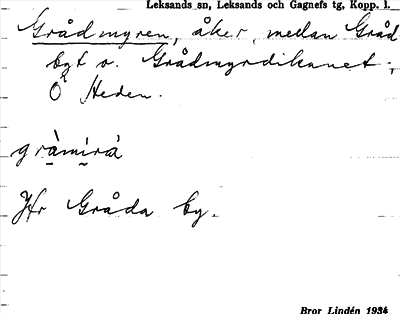 Leksands sn, Leksands och Gagnefs tg, Kopp. l.
Grådmyren, åker, medan Gråd
byt o. Grådmyrdikanet;
Ö Heden.
gràmı̣rà
Jfr Gråda by.
Bror Lindén 1934